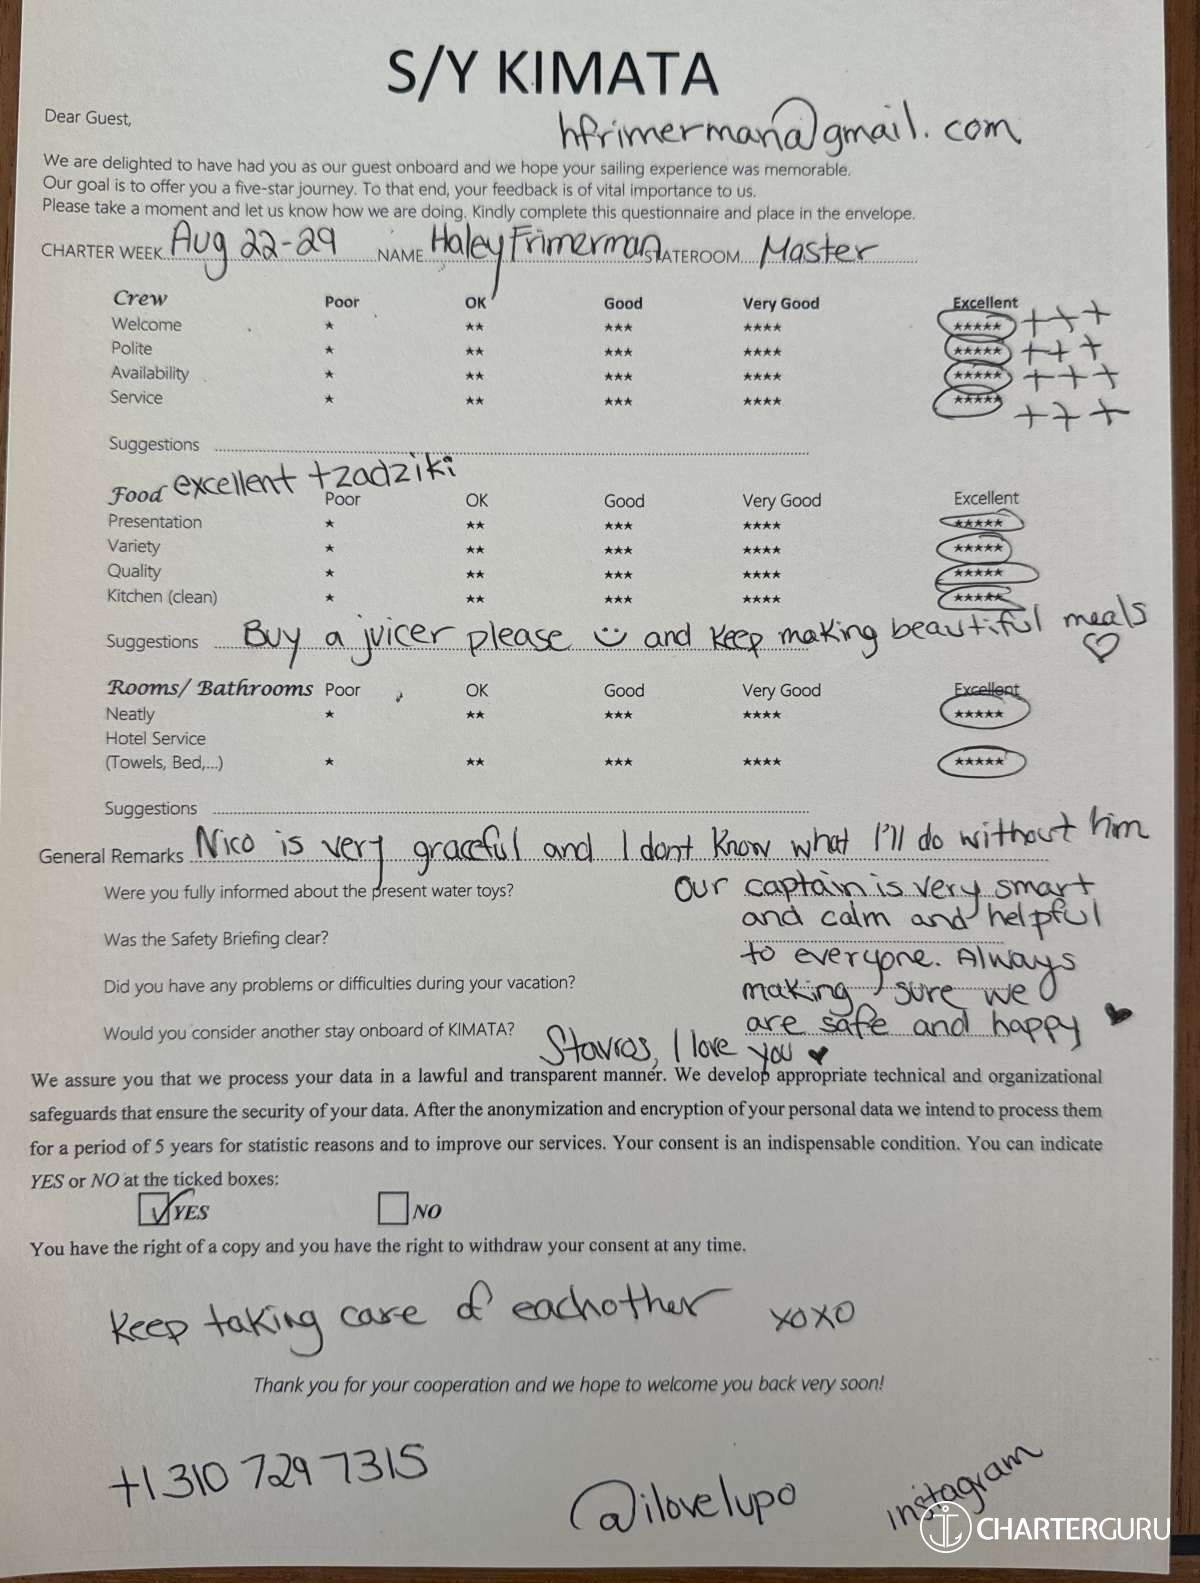 S/Y KIMATA
Dear Guest,
hfrimerman@gmail.com
We are delighted to have had you as our guest onboard and we hope your sailing experience was memorable.
Our goal is to offer you a five-star journey. To that end, your feedback is of vital importance to us.
Please take a moment and let us know how we are doing. Kindly complete this questionnaire and place in the envelope.
CHARTER WEEK Aug 22-29 NAME Haley Frimerman STATEROOM Master
Crew Poor OK Good Very Good Excellent
Welcome ★ ★★ ★★★ ★★★★ ★★★★★ +++
Polite ★ ★★ ★★★ ★★★★ ★★★★★ +++
Availability ★ ★★ ★★★ ★★★★ ★★★★★ +++
Service ★ ★★ ★★★ ★★★★ ★★★★★ +++
Suggestions
excellent tzadziki
Food Poor OK Good Very Good Excellent
Presentation ★ ★★ ★★★ ★★★★ ★★★★★
Variety ★ ★★ ★★★ ★★★★ ★★★★★
Quality ★ ★★ ★★★ ★★★★ ★★★★★
Kitchen (clean) ★ ★★ ★★★ ★★★★ ★★★★★
Suggestions Buy a juicer please ☺ and keep making beautiful meals ♡
Rooms/ Bathrooms Poor OK Good Very Good Excellent
Neatly ★ ★★ ★★★ ★★★★ ★★★★★
Hotel Service
(Towels, Bed,...) ★ ★★ ★★★ ★★★★ ★★★★★
Suggestions
General Remarks Nico is very graceful and I dont know what I'll do without him
Were you fully informed about the present water toys? our captain is very smart
and calm and helpful
Was the Safety Briefing clear?
to everyone. Always
Did you have any problems or difficulties during your vacation? making sure we
Would you consider another stay onboard of KIMATA? are safe and happy ♥
Stavros, I love you ♥
We assure you that we process your data in a lawful and transparent manner. We develop appropriate technical and organizational
safeguards that ensure the security of your data. After the anonymization and encryption of your personal data we intend to process them
for a period of 5 years for statistic reasons and to improve our services. Your consent is an indispensable condition. You can indicate
YES or NO at the ticked boxes:
☑ YES ☐ NO
You have the right of a copy and you have the right to withdraw your consent at any time.
keep taking care of eachother xoxo
Thank you for your cooperation and we hope to welcome you back very soon!
+1 310 729 7315
@ilovelupo instagram
CHARTERGURU